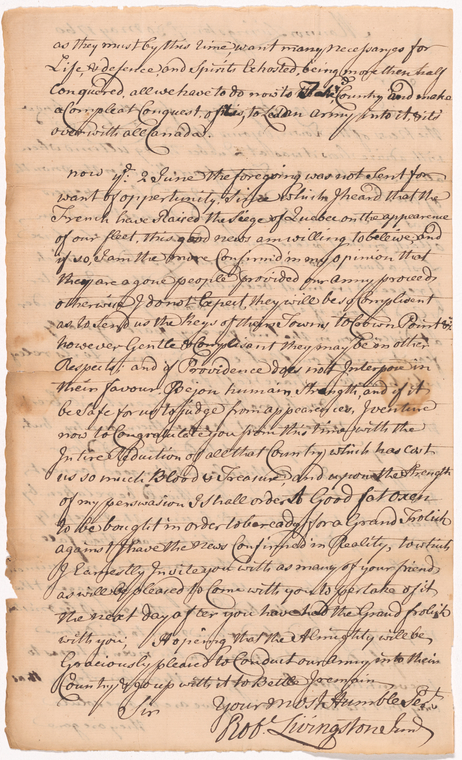 as they must by this time want many necessarys for
Life, & defence and Spirits Exhosted, being more then half
Conquered, all we have to do now to Take Country and make
a Compleat Conquest of it, is, to Led an Army into it, & its
over with all Canada.
now ye. 2 June the foregoing was not Sent for
want of oppertunity. Since which I heard that the
French have Raised the Siege of Quebec on the appearence
of our fleet, this good news am willing to beleive, and
if so, I am the more Confirmd in my opinion that
they are a gone people provided our Army proceed,
otherwise I do not Expect, they will be so Complisent
as to Send us the Keys of there Towns to Crown Point &c
however Gentle & Complisant they may be in other
Respects: and if Providence does not Interpose in
their favour, Beyon humain Strength, and if it
be Safe for us to judge from appearences, I venture
now to Congratulate you from this time with the
Intire Reduction of all that Country which has cast
us so much Blood & Treasure, and upon the Strength
of my perswasion I shall order A Good fat oxen
to be bought in order to be ready for a Grand Frolick
against I have the news Confirmed in Reality, to which
I Earnestly Invite you with as many of your friends
as will be pleased to Come with you to pertake of it
the next day after you have had the Grand frolick
with you, Hopeing that the Almighty will be
Graciously pleased to Conduct our Army into their
Country & go up with it to Battle I remain
Sir
Your most Humble Sert.
Robt. Livingston Junr